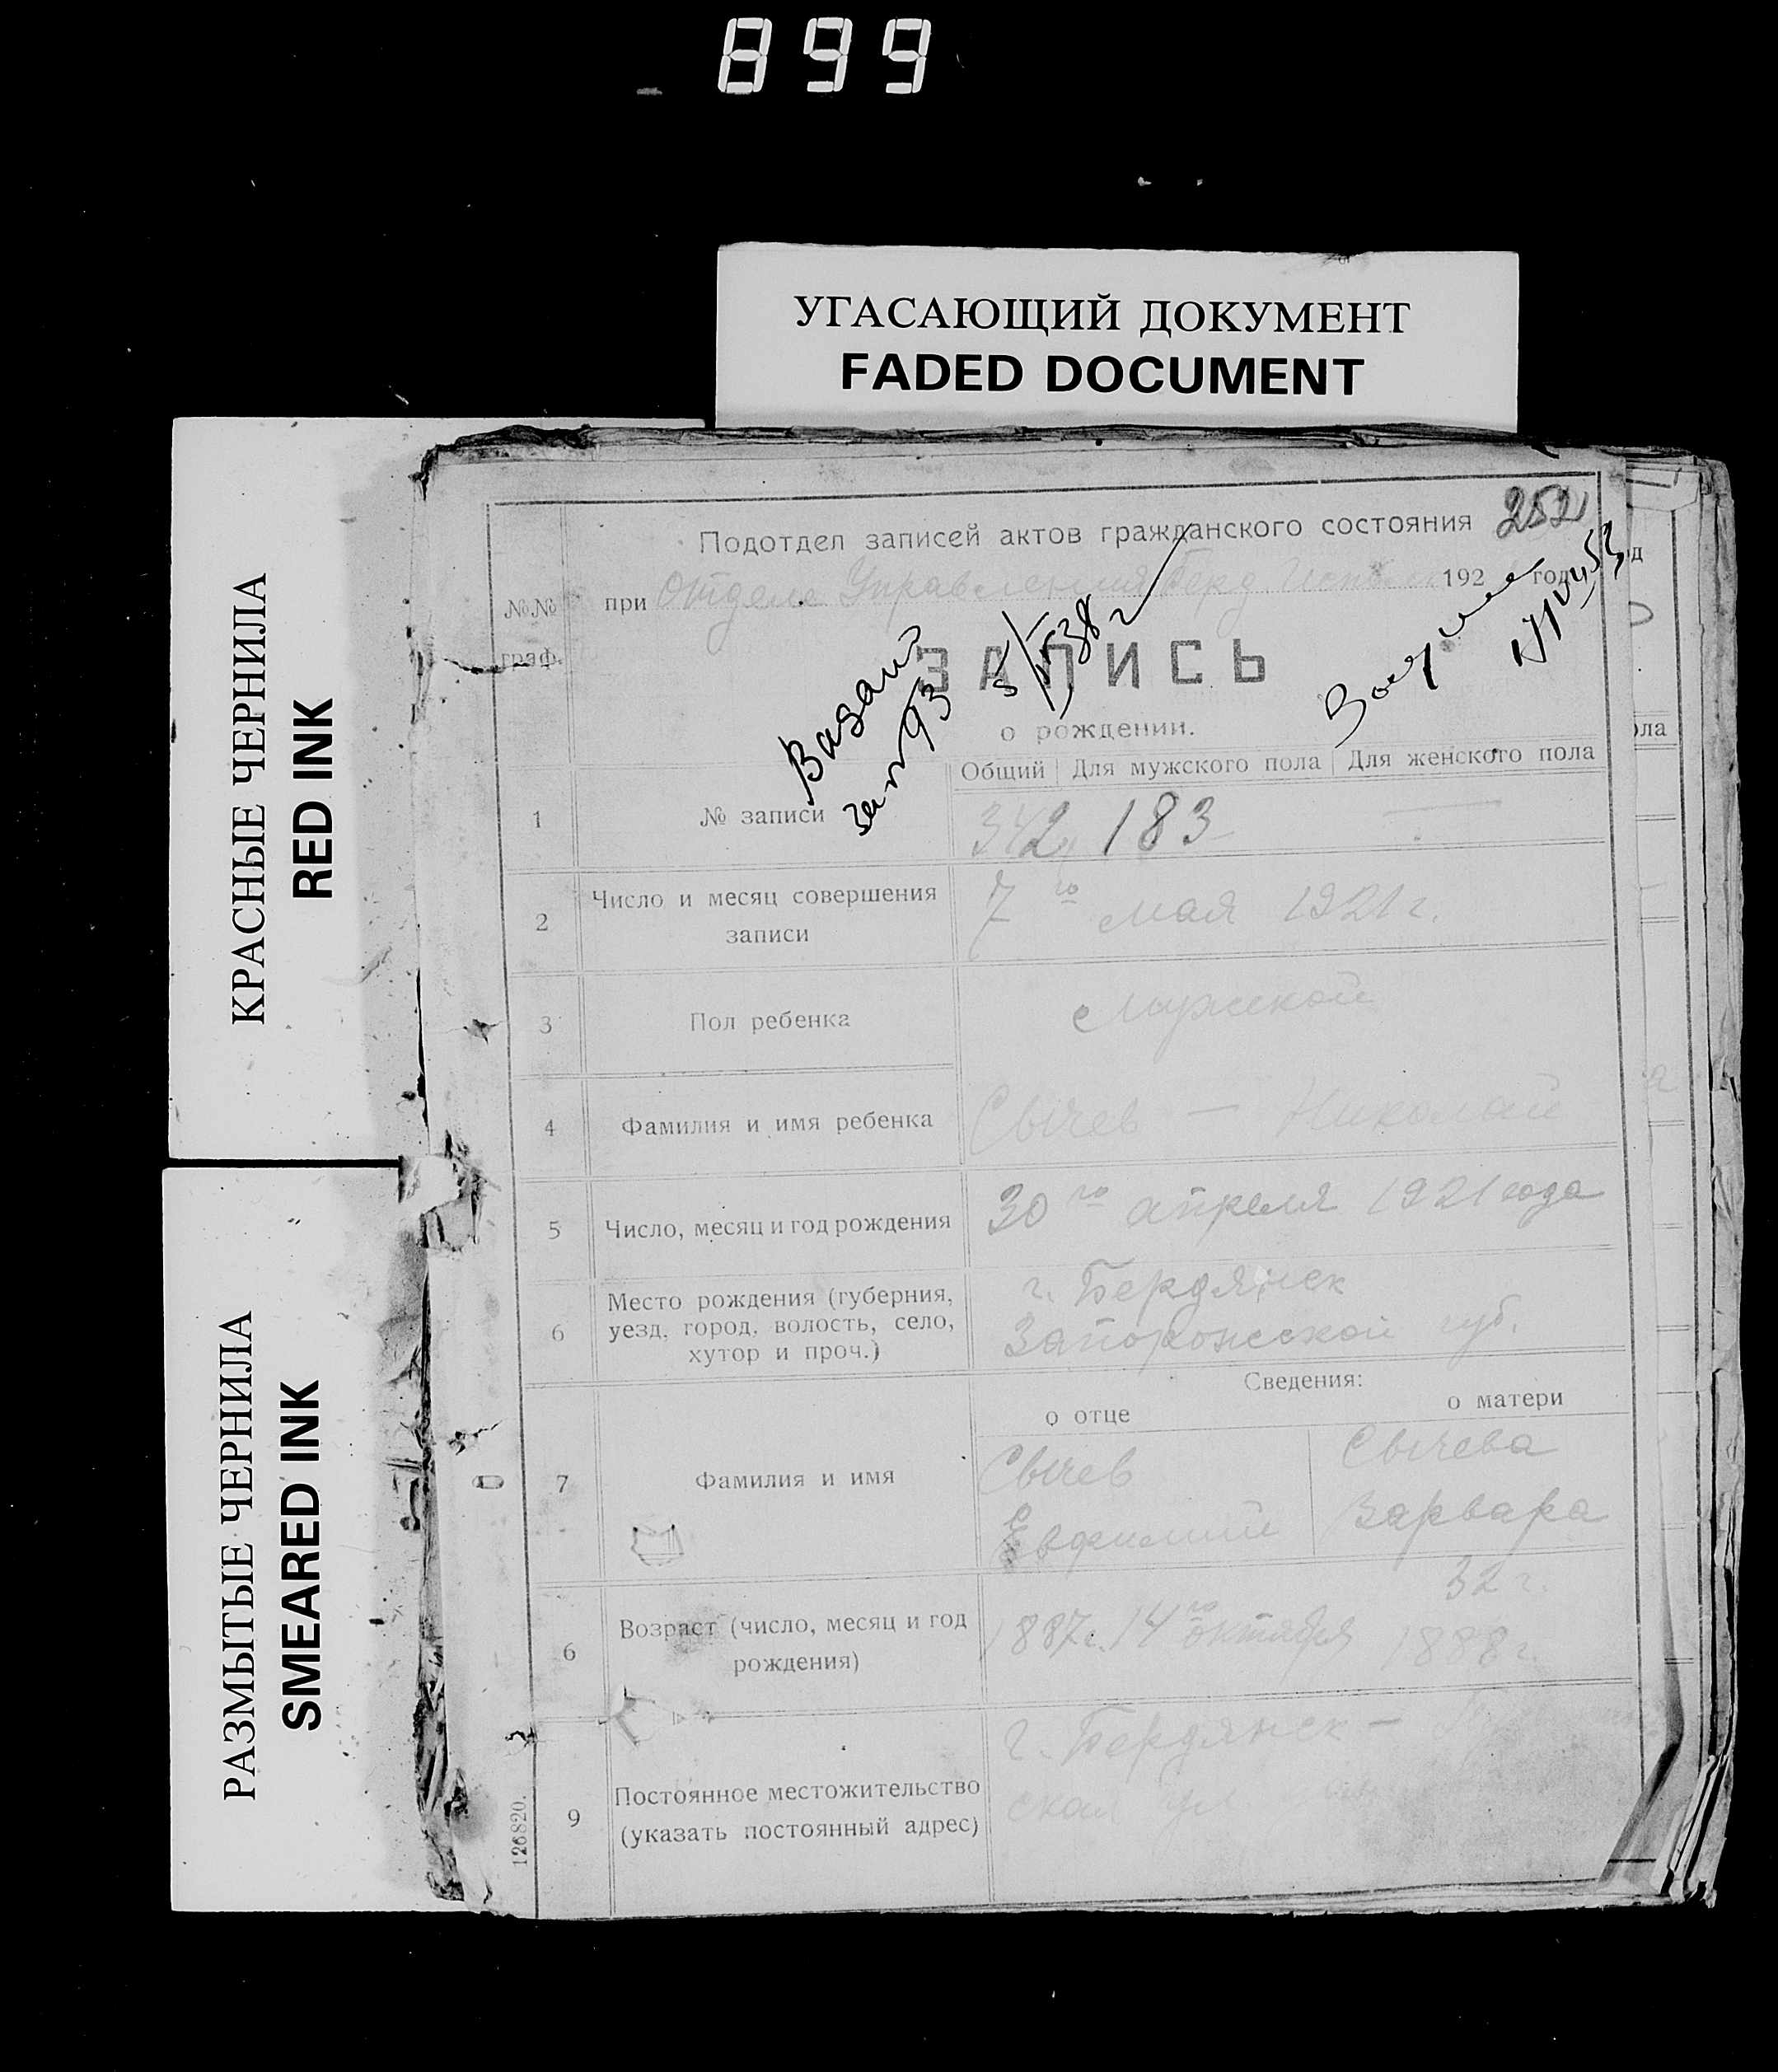 899
УГАСАЮЩИЙ ДОКУМЕНТ
FADED DOCUMENT
КРАСНЫЕ ЧЕРНИЛА
RED INK
РАЗМЫТЫЕ ЧЕРНИЛА
SMEARED INK
252
Подотдел записей актов гражданского состояния
№№ граф.
при Отделе Управления Берд 192 год
ЗАПИСЬ
о рождении.
5/IV 38 г
Общий Для мужского пола Для женского пола
1 № записи 342 183 —
2 Число и месяц совершения записи 7го мая 1921 г.
3 Пол ребенка Мужской
4 Фамилия и имя ребенка Сычев — Николай
5 Число, месяц и год рождения 30го апреля 1921 года
6 Место рождения (губерния, г. Бердянск
уезд, город, волость, село, Запорожской губ.
хутор и проч.)
Сведения:
о отце о матери
7 Фамилия и имя Сычев Сычева
Евфимий Варвара
32 г.
6 Возраст (число, месяц и год 1887 г. 14го октября 1888 г.
рождения)
г. Бердянск —
9 Постоянное местожительство ская ул
(указать постоянный адрес)
126820.
д
ола